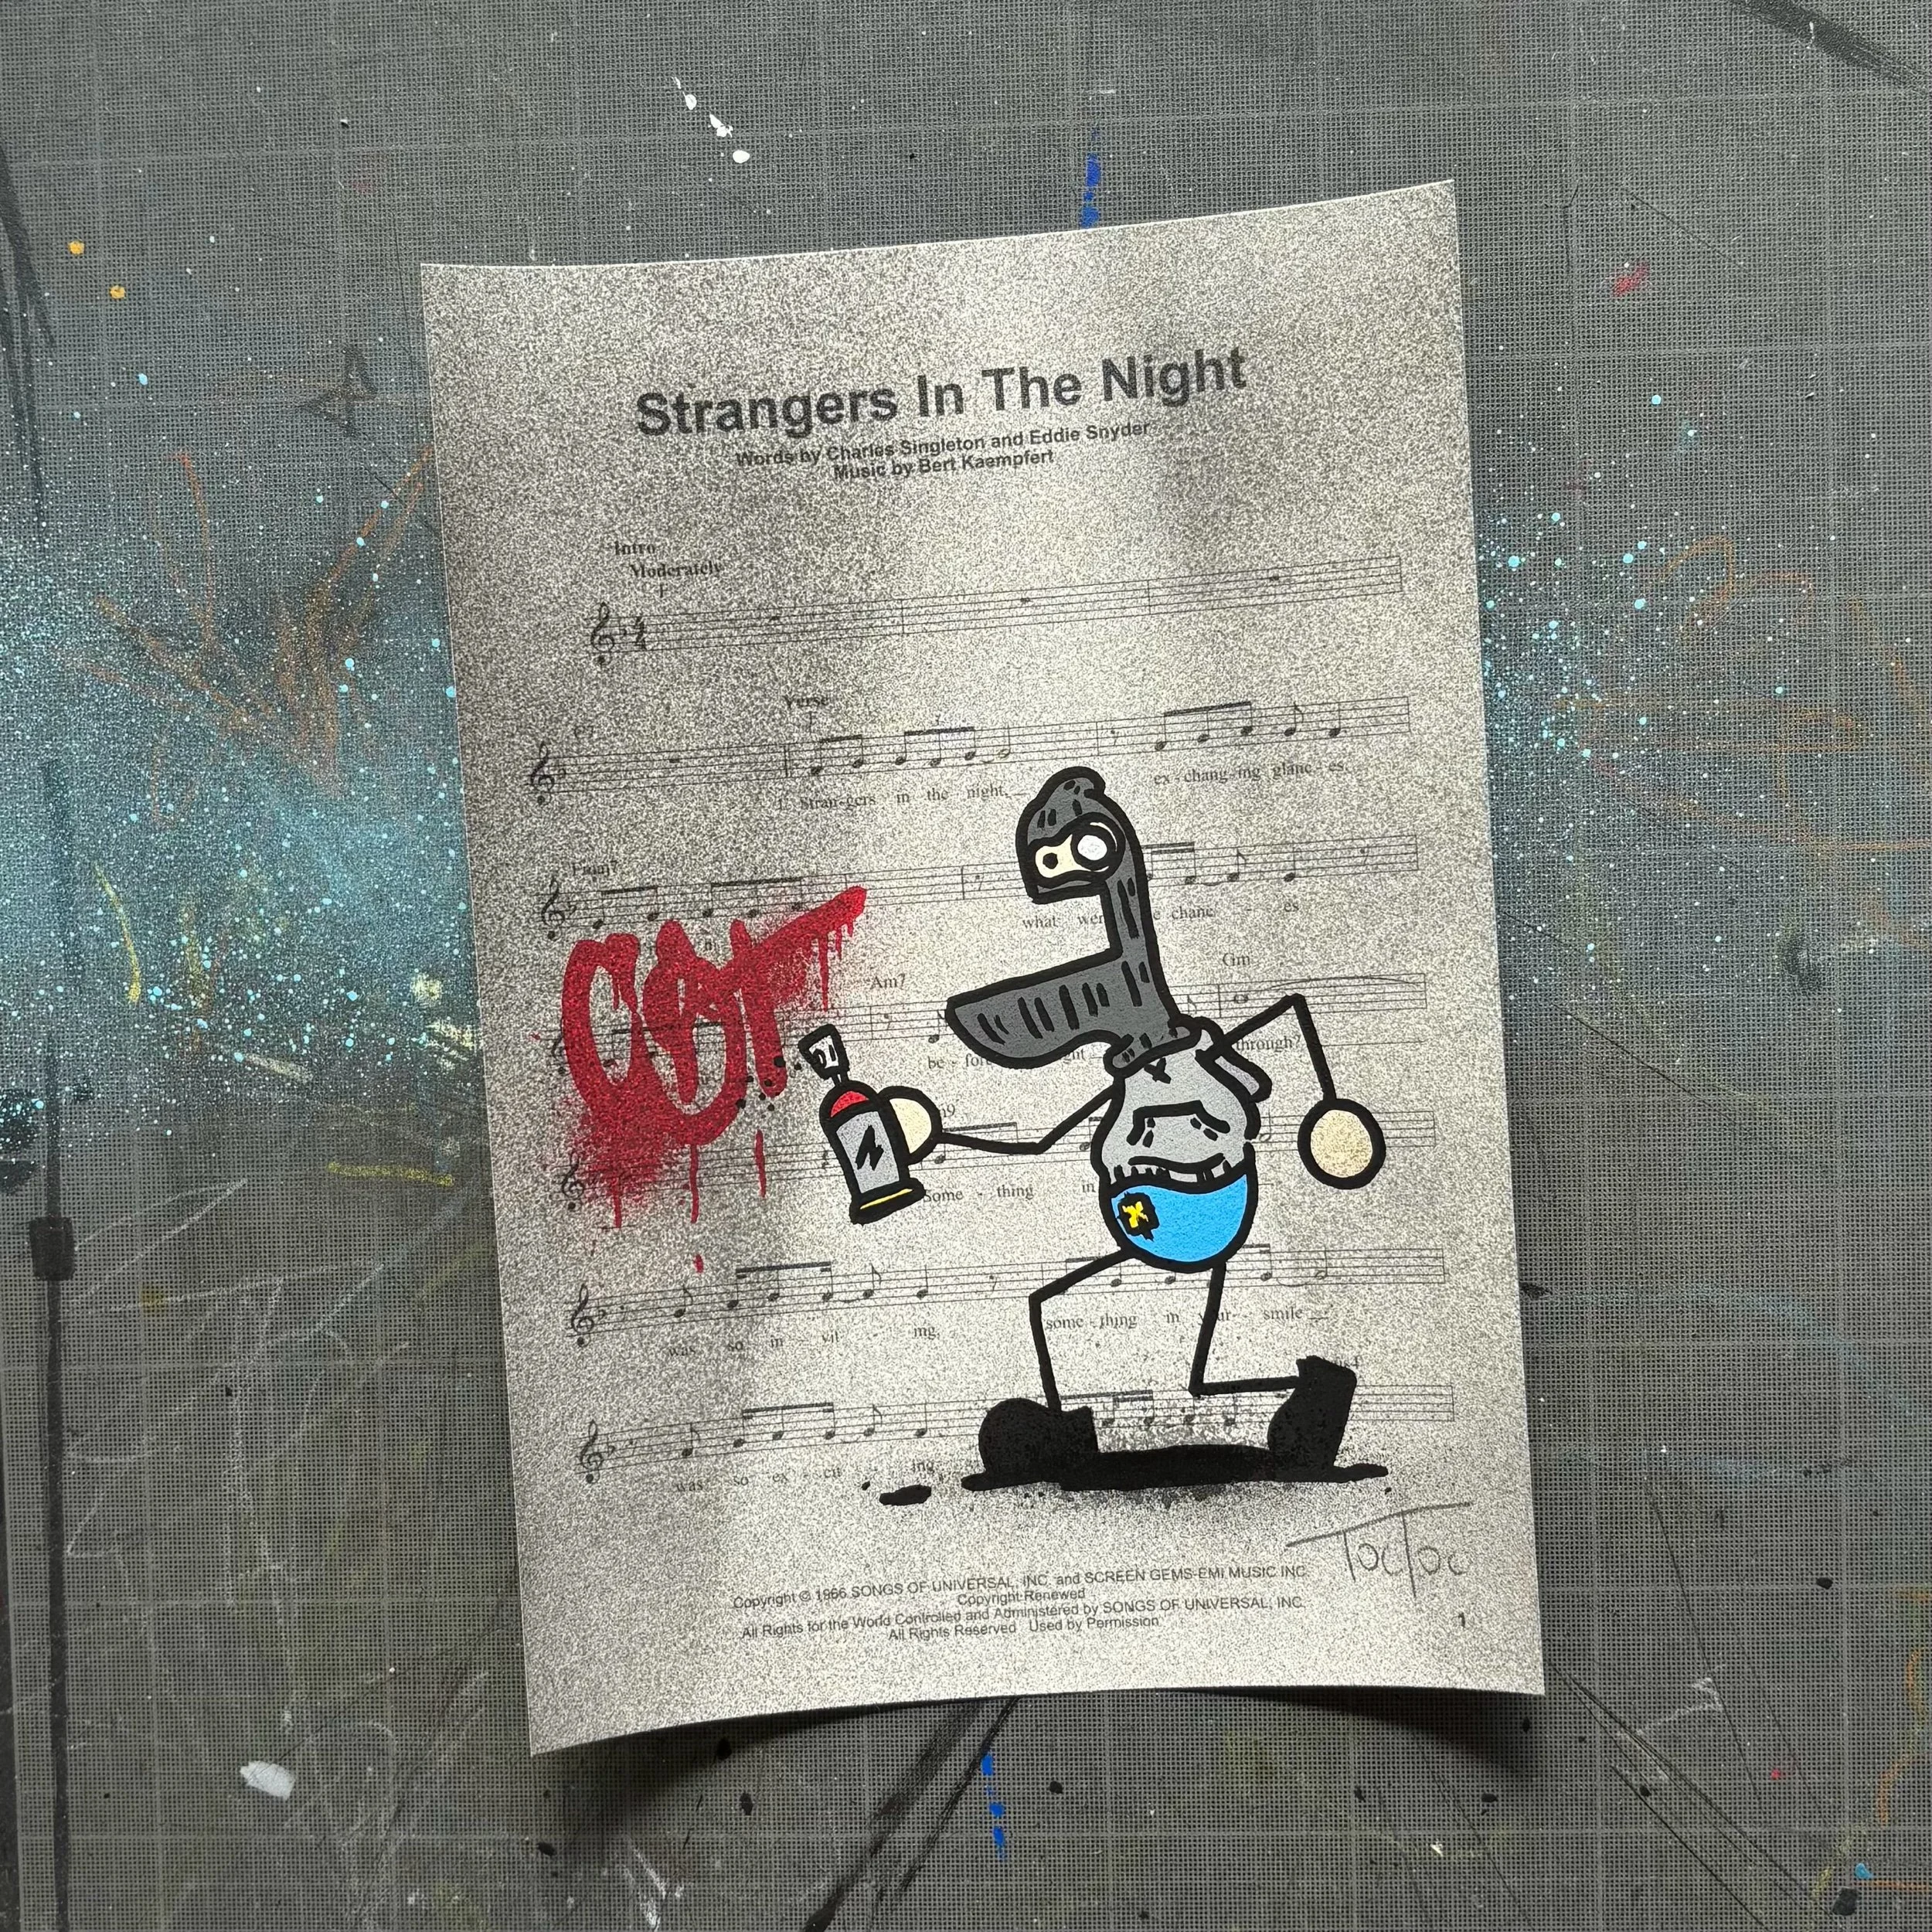 Strangers In The Night
Words by Charles Singleton and Eddie Snyder
Music by Bert Kaempfert
Intro
Moderately
F
4
4
F7
Verse
1. Stran-gers in the night, ex - chang-ing glanc - es
Fmaj7
what chanc es
Am7 Gm
be - through?
Some - thing in
was so in - vit - ing,
some - thing in smile
was so ex - cit - ing
TocToc
Copyright © 1966 SONGS OF UNIVERSAL, INC. and SCREEN GEMS-EMI MUSIC INC.
Copyright Renewed
All Rights for the World Controlled and Administered by SONGS OF UNIVERSAL, INC.
All Rights Reserved Used by Permission
1